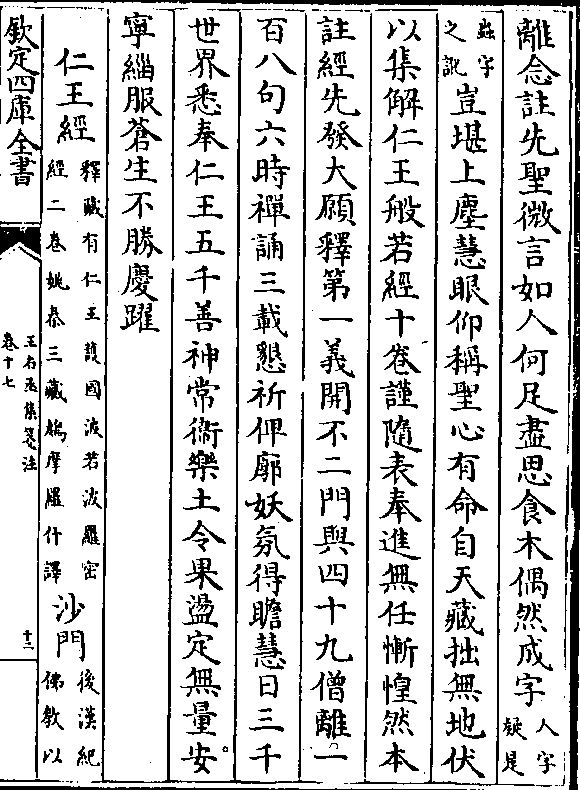 離念註先聖微言如人何足盡思食木偶然成字人字疑是
虫字之訛豈堪上塵慧眼仰稱聖心有命自天藏拙無地伏
以集解仁王般若經十卷謹隨表奉進無任慚惶然本
註經先發大願釋第一義開不二門與四十九僧離一
百八句六時禪誦三載懇祈俾廓妖氛得瞻慧日三千
世界悉奉仁王五千善神常衛樂土今果盪定無量安
寧緇服蒼生不勝慶躍
仁王經釋藏有仁王護國波若波羅密經二卷姚秦三藏鳩摩羅什譯沙門後漢紀佛教以
欽定四庫全書
王右丞集箋注
卷十七
十二